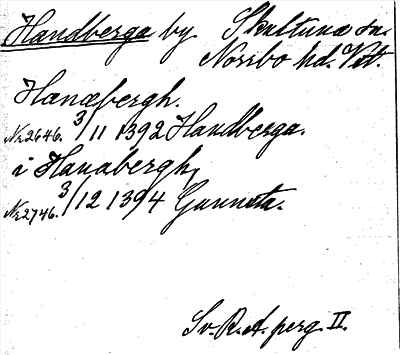 Handberga by Skultuna sn.
Norrbo hd. Vst.
Hanæbergh.
Nr 2646. 3/11 1392 Handberga.
i Hanabergh,
Nr 2746. 3/12 1394 Gunnsta.
Sv. R. A. perg. II.